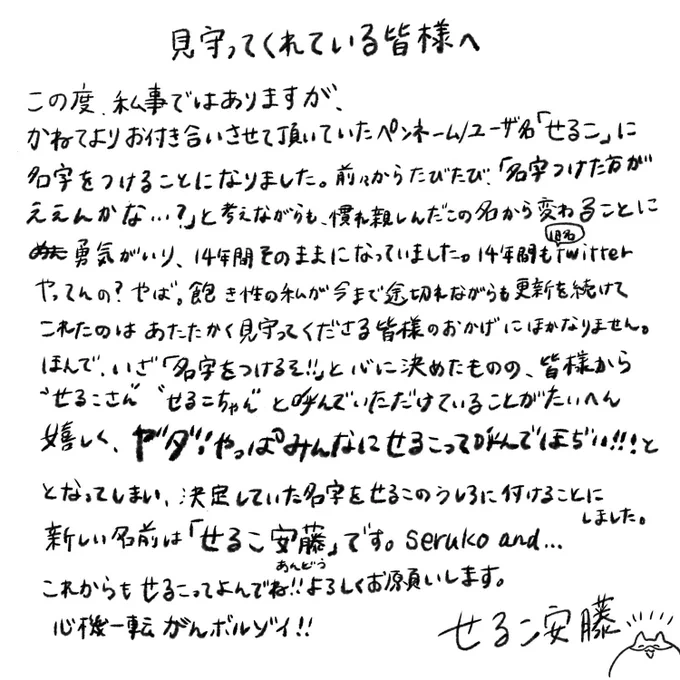 見守ってくれている皆様へ
この度、私事ではありますが、
かねてよりお付き合いさせて頂いていたペンネーム/ユーザ名「せるこ」に
名字をつけることになりました。前々からたびたび、「名字つけた方が
ええんかな…?」と考えながらも、慣れ親しんだこの名から変わることに
勇気がいり、14年間そのままになっていました。14年間も旧名Twitter
やってんの?やば。飽き性の私が今まで途切れながらも更新を続けて
これたのはあたたかく見守ってくださる皆様のおかげにほかなりません。
ほんで、いざ「名字をつけるぞ!!」と心に決めたものの、皆様から
“せるこさん”“せるこちゃん”と呼んでいただけていることがたいへん
嬉しく、ヤダ!!やっぱみんなにせるこって呼んでほぢい!!!と
となってしまい、決定していた名字をせるこのうしろに付けることに
しました。
新しい名前は「せるこ安藤」です。seruko and...
あんどう
これからもせるこってよんでね!!よろしくお願いします。
心機一転がんボルゾイ!!
せるこ安藤